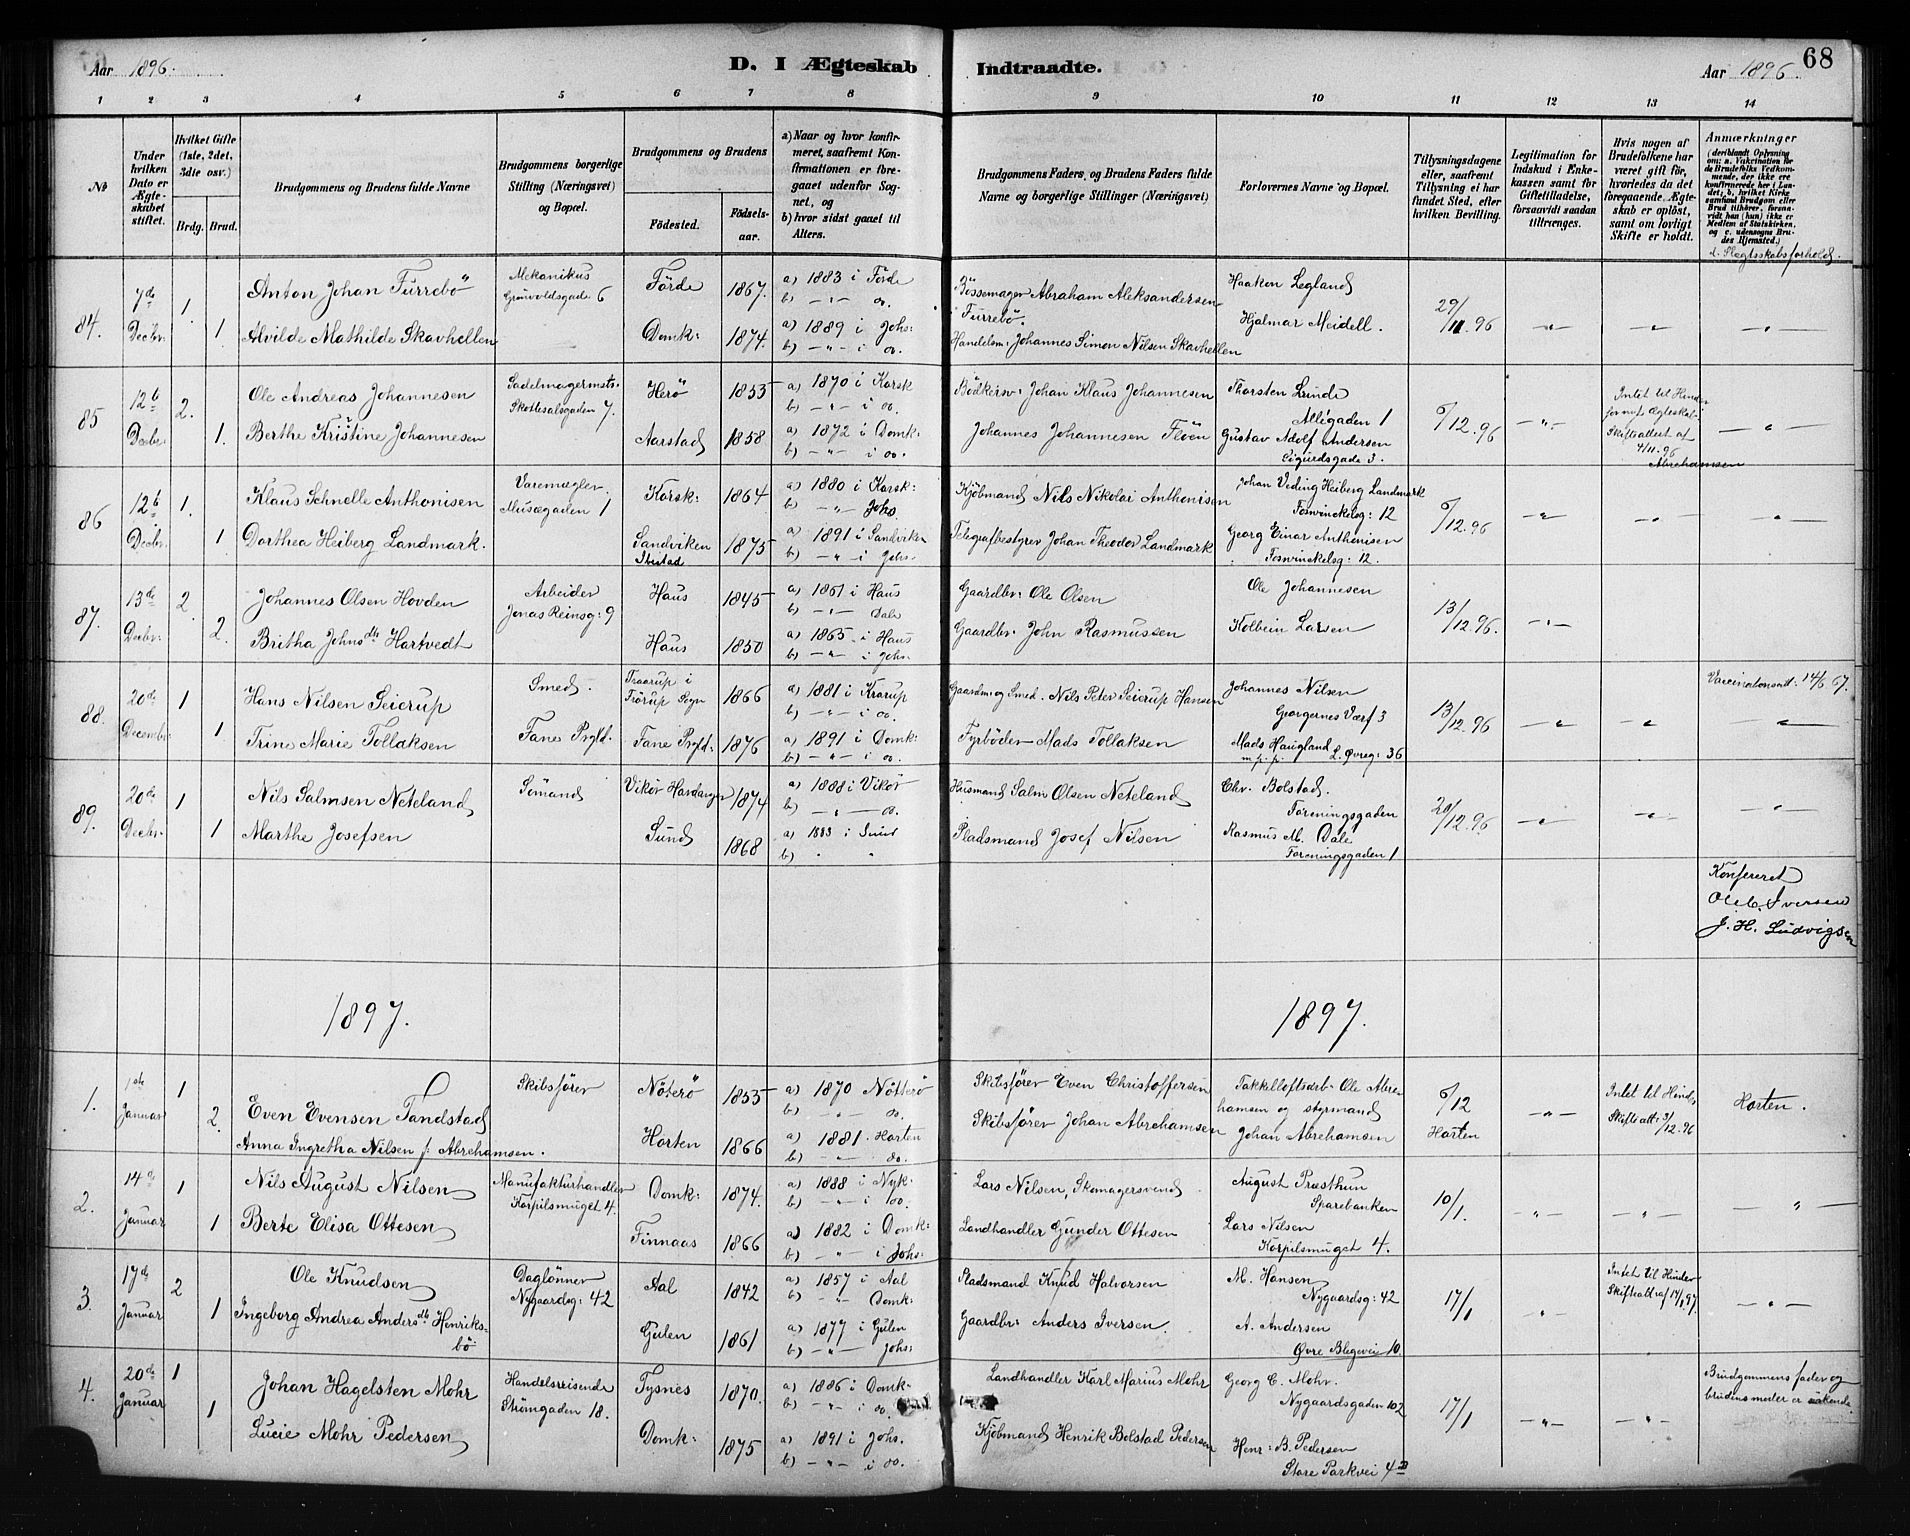 Aar 1896.
D. I Ægteskab Indtraadte.
Aar 1896.
68
1 2 3 4 5 6 7 8 9 10 11 12 13 14
No
Under hvilken Dato er Ægteskabet stiftet.
Hvilket Gifte (1ste, 2det, 3die osv.)
Brdg. Brud.
Brudgommens og Brudens fulde Navne
Brudgommens borgerlige Stilling (Næringsvei) og Bopæl.
Brudgommens og Brudens
Fødested. Fødselsaar.
a) Naar og hvor konfirmeret, saafremt Konfirmationen er foregaaet udenfor Sognet, og
b) hvor sidst gaaet til Alters.
Brudgommens Faders, og Brudens Faders fulde Navne og borgerlige Stillinger (Næringsvei)
Forlovernes Navne og Bopæl.
Tillysningsdagene eller, saafremt Tillysning ei har fundet Sted, efter hvilken Bevilling.
Legitimation for Indskud i Enkekassen samt for Giftetilladelse, forsaavidt saadan tiltrænges.
Hvis nogen af Brudefolkene har været gift før, hvorledes da det foregaaende Ægteskab er opløst, samt om lovligt Skifte er holdt.
Anmærkninger
(deriblandt Oplysning om: a. Vakcination for de Brudefolks Vedkommende, der ikke ere konfirmerede her i Landet; b. hvilket Kirkesamfund Brudgom eller Brud tilhører, forsaavidt han (hun) ikke er Medlem af Statskirken, og c. udensogns Brudes Hjemsted.)
d. Slegtsskabsforhold.
84. 7de Decbr. 1. Anton Johan Furrebö Mekanikus Grønvoldsgade 6 Förde 1867. a) 1883 i Förde b) -"- do. Bössemager Abraham Aleksandersen Furrebö. Haakon Legland 29/11.96
1. Alvilde Mathilde Skavhellen Domk: 1874. a) 1889 i Johs: b) -"- i do. Handelsm: Johannes Simon Nilsen Skavhellen Hjalmar Meidell.
85 12te Decbr. 2. Ole Andreas Johannesen Sadelmagermstr. Skottesalsgaden 7. Herö 1855 a) 1870 i Korsk b) -"- i do. Bödkersv: Johan Klaus Johannesen Thorsten Lunde Allégaden 1 6/12.96 Intet til Hinder for nyt Ægteskab. Skifteattest af 4/11.96
1. Berthe Kristine Johannesen Aarstad 1858 a) 1872 i Domk: b) -"- i do. Johannes Johannesen Flöen Gustav Adolf Andersen Sigurdsgade 3.
86 12te Decbr. 1. Klaus Schnelle Anthonisen Varemægler. Musægaden 1 Korsk: 1864 a) 1880 i Korsk: b) -"- Johs Kjöbmand Nils Nikolai Anthonisen Johan Veding Heiberg Landmark Fosvinckelsg: 12 6/12.96
1 Dorthea Heiberg Landmark. Sandviken Ibestad 1875 a) 1891 i Sandviken b) -"- i Johs. Telegrafbestyrer Johan Theodor Landmark Georg Einar Anthonisen Fosvinckelsg: 12.
87. 13de Decbr: 2. Johannes Olsen Hovden Arbeider Jonas Reinsg: 9 Haus 1845 a) 1861 i Haus b) -"- Dale Gaardbr: Ole Olsen Ole Johannesen 13/12.96.
2. Britha Johnsdtr Hartvedt Haus 1850 a) 1865 i Haus b) -"- i Johs. Gaardbr. John Rasmussen Kolbein Larsen
88. 20de Decembr. 1 Hans Nilsen Seierup Smed. Traarup i Trörup Sogn 1866 a) 1881 i Krarup b) -"- i do. Gaardm: og Smed. Nils Peter Seierup Hansen Johannes Nilsen Georgernes Værf 3 13/12 96 Vaccinationsatt: 14/6 67.
1. Trine Marie Tollaksen Fane Prgld. Fane Prgld. 1876 a) 1891 i Domk: b) -"- i do. Fyrböder Mads Tollaksen Mads Haugland L. Øvreg: 36 m.p.p.
89. 20de Decbr. 1 Nils Salmsen Neteland Sömand Vikör Hardanger 1874 a) 1888 i Vikör b) -"- do. Husmand Salm Olsen Neteland Chr. Bolstad. Föreningsgaden 20/12.96
1 Marthe Josefsen Sund 1868 a) 1883 i Sund b) " " Pladsmand Josef Nilsen Rasmus M. Dale Foreningsgaden 1
Konfereret
Ole C. Iversen
J. H. Ludvigsen
1897. 1897.
1. 1ste Januar 1 Even Evensen Tandstad Skibsförer Nöterö 1855 a) 1870 Nötterö b) -"- do. Skibsförer Even Christoffersen Takkelloftsarb. Ole Abrehamsen og styrmand 6/12 Horten Intet til Hind: Skifteatt: 3/12.96 Horten.
2. Anna Ingretha Nilsen f: Abrehamsen. Horten 1866 a) 1881. Horten b) -"- do. Skibsförer Johan Abrehamsen Johan Abrehamsen
2. 14de Januar 1 Nils August Nilsen Manufakturhandler Korpilsmuget 4. Domk: 1874. a) 1888 i Nyk: b) -"- i do. Lars Nilsen, Skomagersvend August Præsthun Sparebanken 10/1.
1 Berte Elisa Ottesen Finnaas 1866 a) 1882 i Domk: b) -"- i Johs: Landhandler Gunder Ottesen Lars Nilsen Korpilsmuget 4.
3. 17de Januar 2 Ole Knudsen Daglönner Nygaardsg: 42 Aal 1842 a) 1857 i Aal b) -"- Domk: Pladsmand Knud Halvorsen M. Hansen Nygaardsg: 42 17/1 Intet til Hinder Skifteatt af 14/1 97.
1 Ingeborg Andrea Andersdtr Henriksbö Gulen 1861 a) 1877 i Gulen b) -"- Johs: Gaardbr: Anders Iversen. A. Andersen Øvre Blegevei 10
4. 20de Januar 1 Johan Hagelsten Mohr Handelsreisende Strömgaden 18. Tysnes 1870. a) 1886 i Domk. b) -"- i do. Landhandler Karl Marius Mohr Georg C. Mohr. Nygaardsgaden 102 17/1 Brudgommens fader og brudens moder er sökende.
1 Lucie Mohr Pedersen Domk: 1875 a) 1891 i Johs. b) -"- i do. Kjöbmand Henrik Bolstad Pedersen Henr: B. Pedersen Store Parkvei 4B